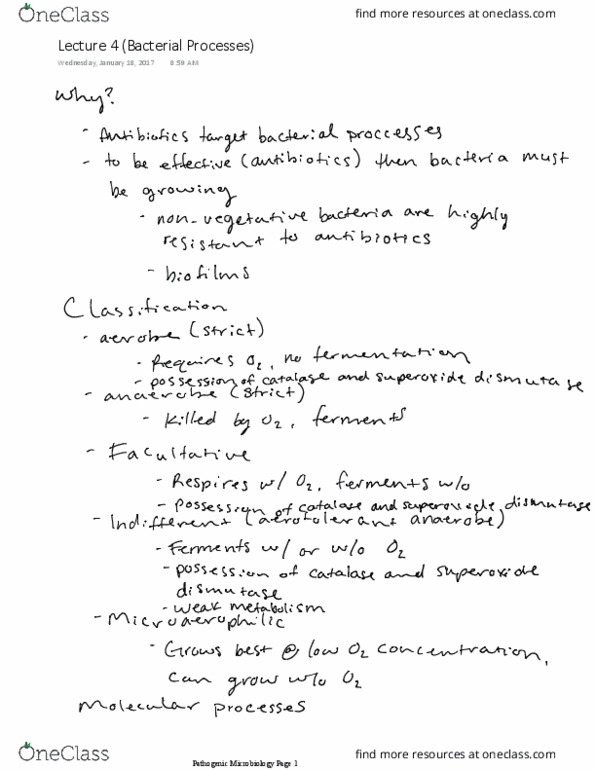 OneClass find more resources at oneclass.com
Lecture 4 (Bacterial Processes)
Wednesday, January 18, 2017 8:59 AM
Why?
- Antibiotics target bacterial proccesses
- to be effective (antibiotics) then bacteria must
be growing
- non-vegetative bacteria are highly
resistant to antibiotics
- biofilms
Classification
- aerobe (strict)
- Requires O2, no fermentation
- possession of catalase and superoxide dismutase
- anaerobe (strict)
- Killed by O2, ferments
- Facultative
- Respires w/ O2, ferments w/o
- possession of catalase and superoxide dismutase
- Indifferent (aerotolerant anaerobe)
- Ferments w/ or w/o O2
- possession of catalase and superoxide
dismutase
- weak metabolism
- Microaerophilic
- Grows best @ low O2 concentration,
can grow w/o O2
Molecular processes
OneClass find more resources at oneclass.com
Pathogenic Microbiology Page 1